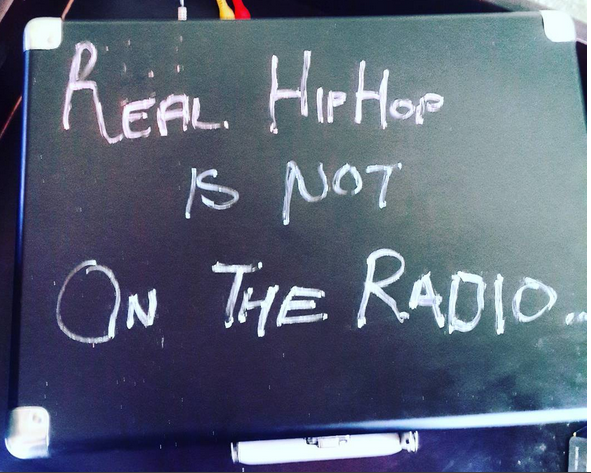 REAL HIPHOP
IS NOT
ON THE RADIO..